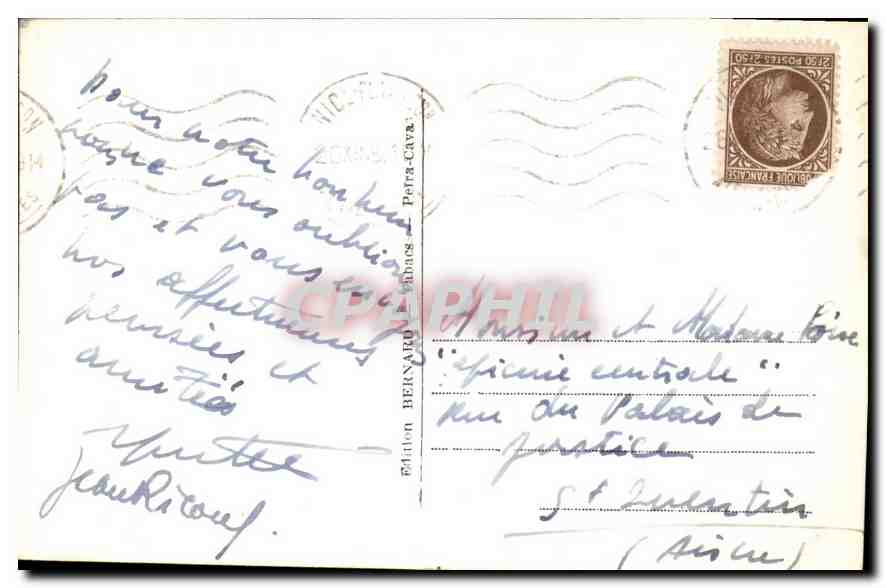 dans notre bonheur
nous ne vous oublions
pas et vous envoyons
nos affectueuses
pensées et
amitiés
Jean Ricouf.
Edition BERNARD — Tabacs — Peira-Cava
CPAPHIL
2F50 POSTES 2F50
RÉPUBLIQUE FRANÇAISE
Monsieur et Madame
"Épicerie centrale"
rue du Palais de
justice
St Quentin
(Aisne)